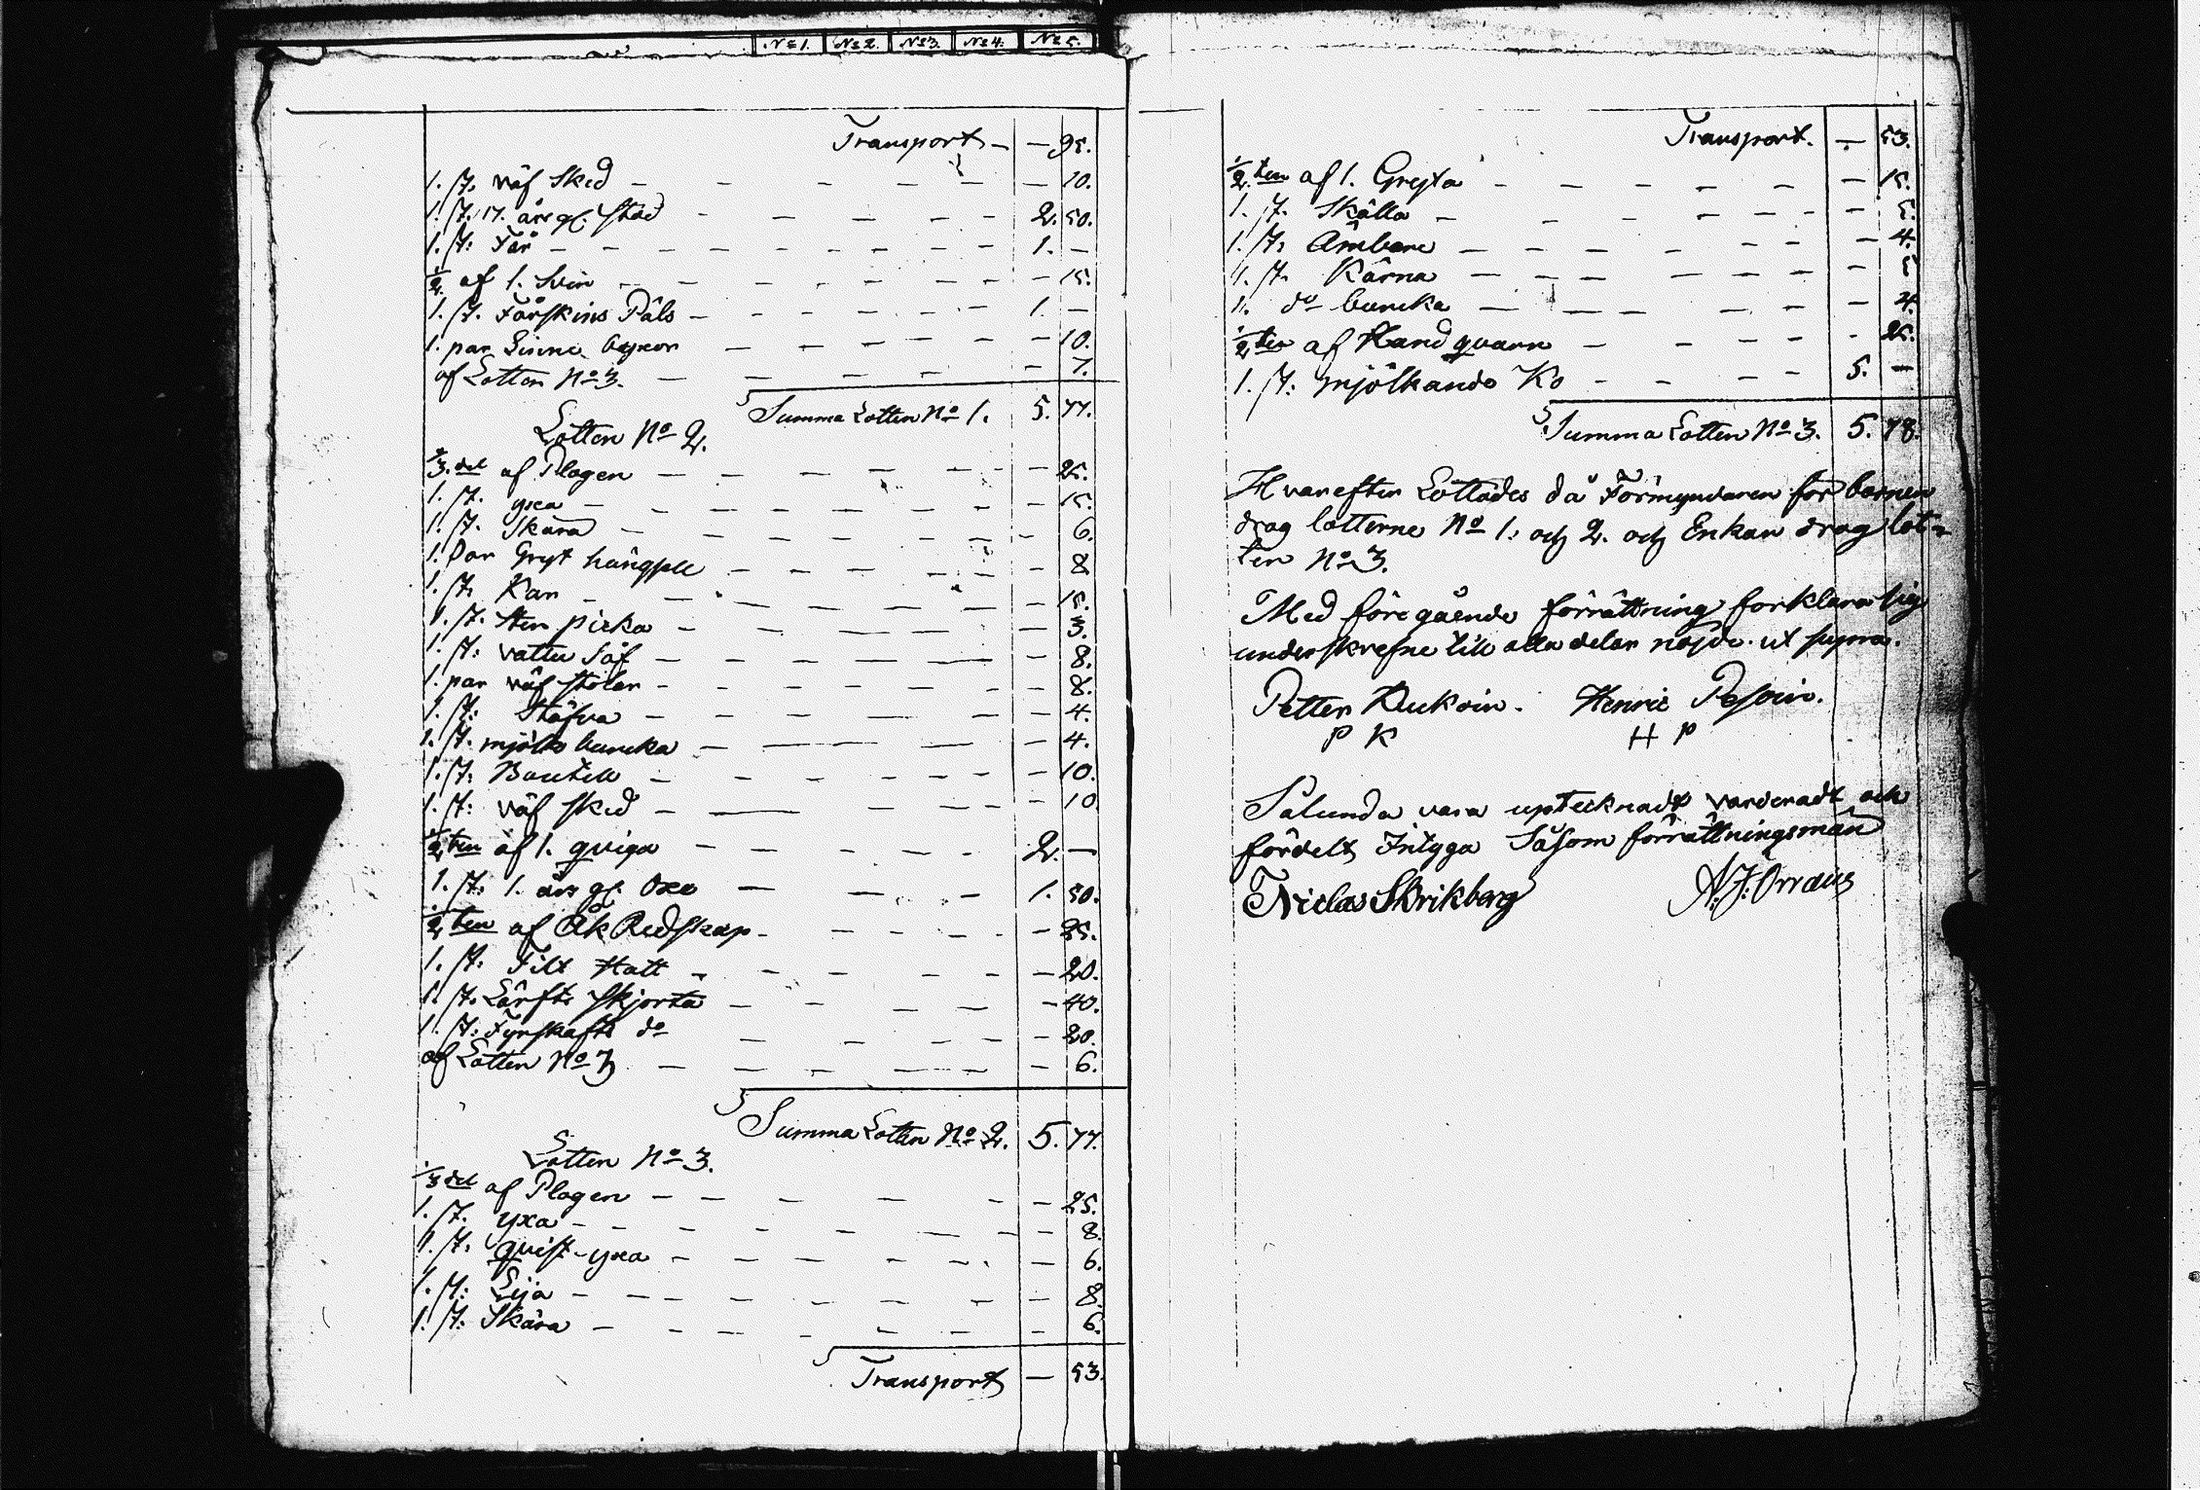 No 1. No 2. No 3. No 4. No 5.
Transport - - 95.
1. st. väf Sked - 10.
1. st. 17. års gl. Stod 2. 50.
1. st. Får - 1. -
1/2 af 1. Svin - 15.
1. st. Fårskins Päls - 1. -
1. par Linne byxor - 10.
af Lotten No 3. - 7.
Summa Lotten No 1. 5. 77.
Lotten No 2.
1/3. del af Plogen - 25.
1. st. yxa - 15.
1. st. Skära - 6.
1. Par Gryt hängsle - 8
1. st. Kar - 15.
1. st. sten picka - 3.
1. st. vattu Så - 8.
1. par väf stolar - 8.
1. st. Stäfva - 4.
1. st. mjölk buncka - 4.
1. st: Boutell - 10.
1. st: väf sked - 10
1/2 ten af 1. qviga 2. -
1. st. 1. års gl. Oxe 1. 50.
1/2 ten af Åk Redskap - 25.
1. st. Filt Hatt - 20.
1. st. Lärfts Skjorta - 40.
1. st: Fyrskafts do - 20.
af Lotten No 3 - 6.
Summa Lotten No 2. 5. 77.
Lotten No 3.
1/3 del af Plogen - 25.
1. st. yxa - 8.
1. st. qvist-yxa - 6.
1. st: Lija - 8.
1. st: Skära - 6.
Transport - 53.
Transport. - 53.
1/2 ten af 1. Gryta - 15.
1. st. Skålla - 5.
1. st. Ämbare - 4.
1. st. Kärna - 5
1. do buncka - 4.
1/2 ten af Hand qvarn - 25.
1. st: mjölkande Ko 5. -
Summa Lotten No 3. 5. 78.
Hvarefter Lottades då Förmyndaren för barnen
drog lotterne No 1. och 2. och Enkan drog lot-
ten No 3.
Med föregående förrättning förklara sig
underskrefne till alla delar nöjde. ut supra.
Petter Kukoin. Henric Pesoin.
P K H P
Sålunda vara uptecknadt värderadt och
fördelt Intyga Såsom förrättningsmän
Niclas Skrikberg A. J. Orraus